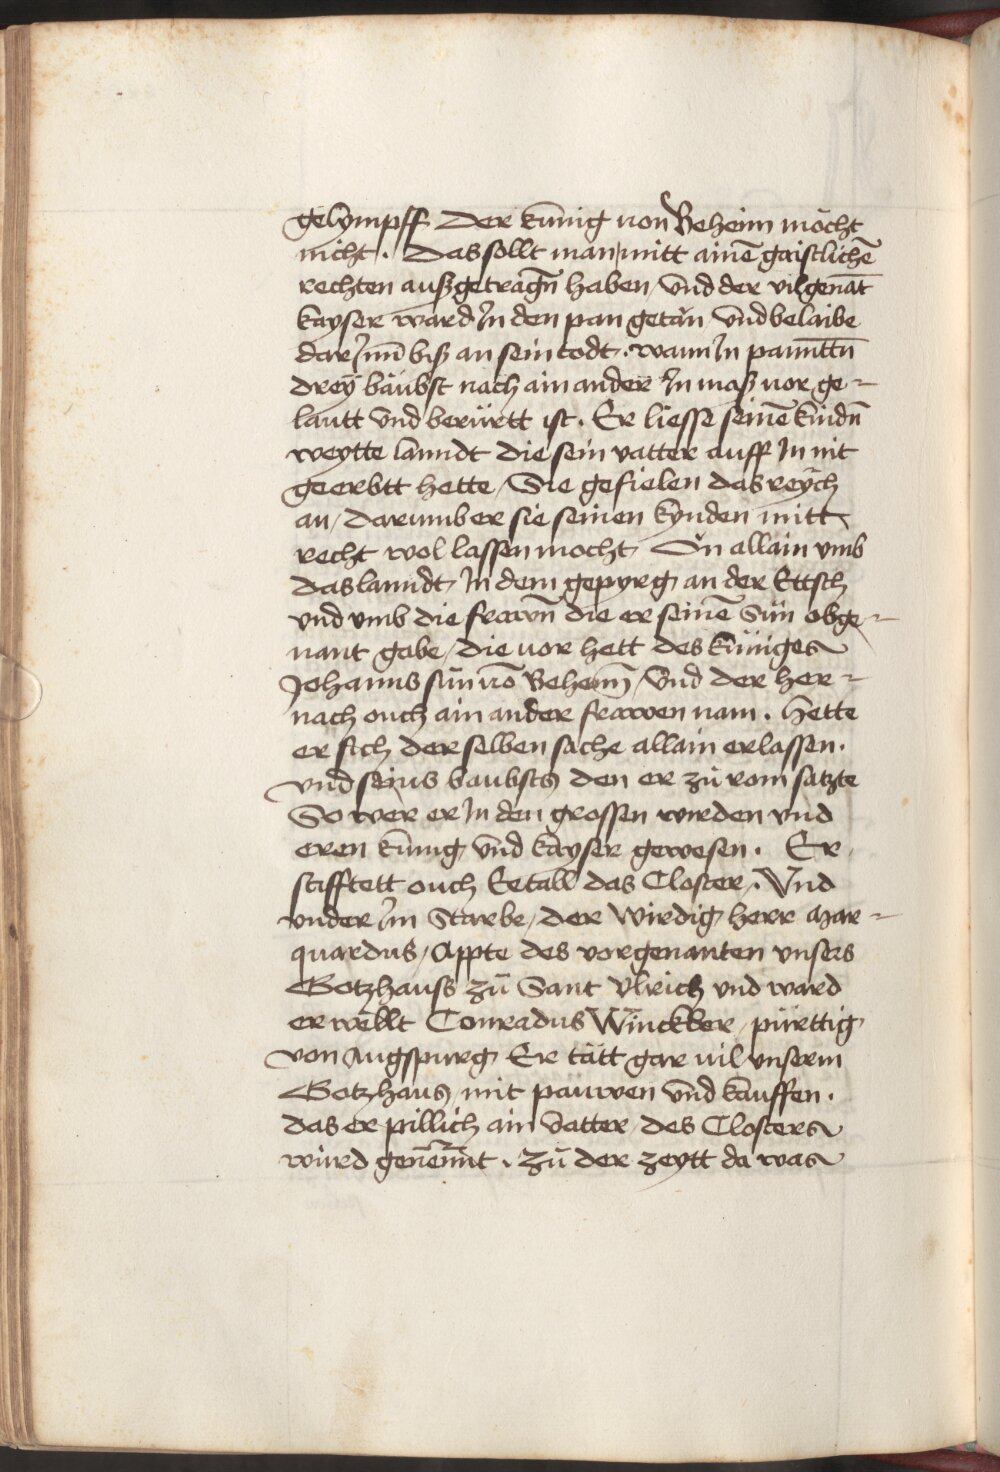 gelympff Der kün̄ig von Beheim möcht
nicht. Das sollt man mitt ainē gaistlichē
rechten außgetragn̄ haben, Vnd der vilgenāt
kayser ward Jn den pan getän Vnd belaibe
darJnn̄ biß an sein todt. wann Jn pannttn̄
dreÿ bäubst nach ain ander Jn maß vor ge-
lautt Vnd berürtt ist. Er liesse seinē kindn̄
weytte lanndt die sein vatter auff Jn nit
geerbtt hette, Sie gefielen das reÿch
an, darumb er sie seinen kynden mitt
recht wol lassen mocht On allain vmb
das lanndt Jn dem gepyrg an der Ettsch
vnd vmb die frawn̄ die er seinē Sün obge-
nant gabe, die vor hett des küniges
Johanns sün vō Behem̄, Vnd der her-
nach ouch ain ander frawen nam. Hette
er sich derselben sache allain erlassen.
vnd seins baubsts den er zü rom satzte
So wer er Jn den grossen wirden vnd
eren künig Vnd kayser gewesen. Er
stifftett ouch Eetall das Closter. Vnd
vnder Jm Starbe, der Wirdig herr Mar-
quardus, Appte des vorgenanten vnsers
Gotzhauss zü Sant Vlrich vnd ward
erwellt Conradus Winckler, pürttig
von Augspurg Er tätt gar vil vnserm
Gotzhaus mit päuwen Vnd kauffen.
das er pillich ain Vatter des Closters
würd genēnnt. zü der zeytt da was